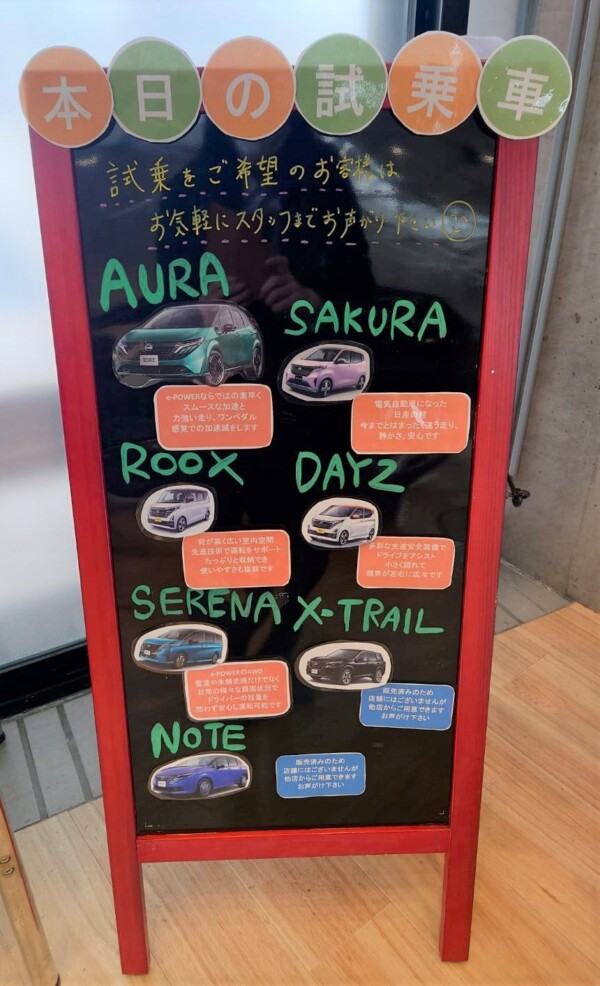 本日の試乗車
試乗をご希望のお客様は
お気軽にスタッフまでお声がけ下さい
AURA
SAKURA
e-POWERならではの素早く
スムースな加速と
力強い走り、ワンペダル
感覚での加速減をします
電気自動車になった
日産の軽
今までとはまったく違う走り、
静かさ、安心です
ROOX
DAYZ
背が高く広い室内空間
先進技術で運転をサポート
たっぷりと収納でき
使いやすさも抜群です
多彩な先進安全装備で
ドライブをアシスト
小さく回れて
視界が左右に広々です
SERENA
X-TRAIL
e-POWERの4WD
雪道や未舗装路だけでなく
日常の様々な路面状況で
ドライバーの技量を
問わず安心し運転可能です
販売済みのため
店舗にはございませんが
他店からご用意できます
お声がけ下さい
NOTE
販売済みのため
店舗にはございませんが
他店からご用意できます
お声がけ下さい